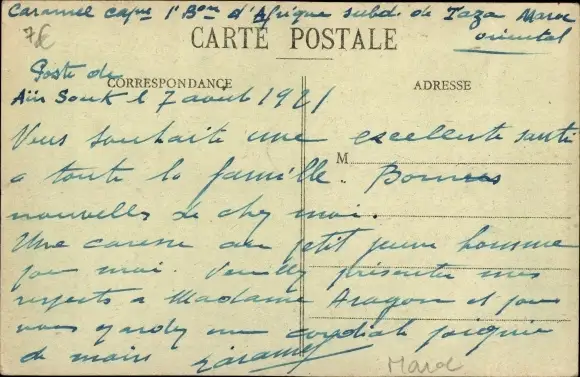 Caramel cap^ne 1^r B^on d'Afrique subd. de Taza Maroc
oriental
7€
CARTE POSTALE
Poste de
CORRESPONDANCE
ADRESSE
Aïn Souk le 7 aout 1921
Vous souhaite une excellente santé
a toute la famille. Bonnes
M
nouvelles de chez moi.
Une caresse au petit jeune homme
pour moi. Veuillez présenter mes
respects a Madame Aragon et pour
vous gardez une cordiale poignée
de mains
Maroc